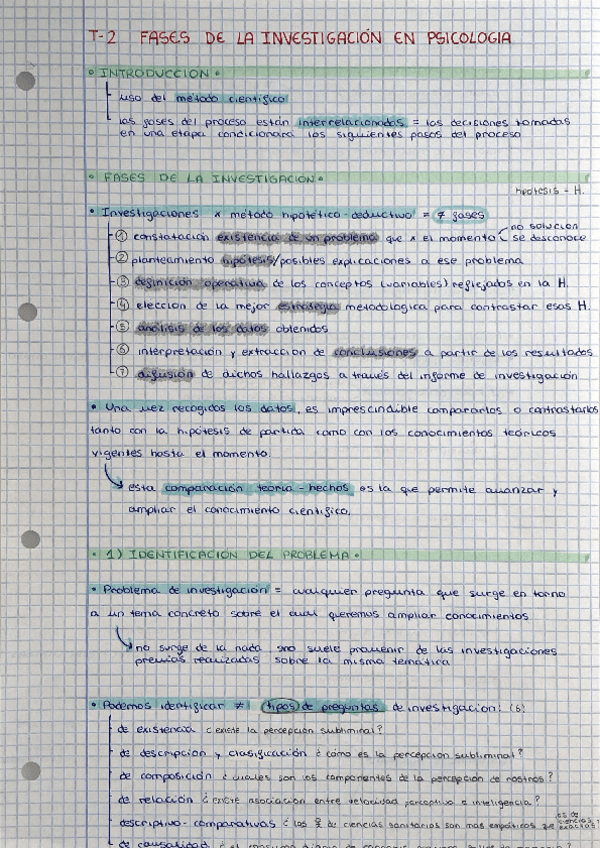 T-2 FASES DE LA INVESTIGACIÓN EN PSICOLOGIA
• INTRODUCCION •
uso del método científico
las fases del proceso están interrelacionadas = las decisiones tomadas
en una etapa condicionará los siguientes pasos del proceso
• FASES DE LA INVESTIGACION •
hipótesis - H.
• Investigaciones x método hipotético-deductivo = 7 fases
① constatación existencia de un problema que x el momento
no solución
se desconoce
② planteamiento hipótesis/posibles explicaciones a ese problema
③ definición operativa de los conceptos (variables) reflejados en la H.
④ elección de la mejor estrategia metodológica para contrastar esas H.
⑤ análisis de los datos obtenidos
⑥ interpretación y extracción de conclusiones a partir de los resultados
⑦ difusión de dichos hallazgos a través del informe de investigación
• Una vez recogidos los datos, es imprescindible compararlos o contrastarlos
tanto con la hipótesis de partida como con los conocimientos teóricos
vigentes hasta el momento.
esta comparación teoría - hechos es la que permite avanzar y
ampliar el conocimiento científico.
• 1) IDENTIFICACIÓN DEL PROBLEMA •
• Problema de investigación = cualquier pregunta que surge en torno
a un tema concreto sobre el cual queremos ampliar conocimientos
no surge de la nada sino suele provenir de las investigaciones
previas realizadas sobre la misma temática
• Podemos identificar ≠ tipos de preguntas de investigación: (6)
de existencia ¿existe la percepción subliminal?
de descripción y clasificación ¿cómo es la percepción subliminal?
de composición ¿cuales son los componentes de la percepción de rostros?
de relación ¿existe asociación entre velocidad perceptiva e inteligencia?
descriptivo-comparativas ¿las ♀ de ciencias sanitarias son mas empáticas
de causalidad